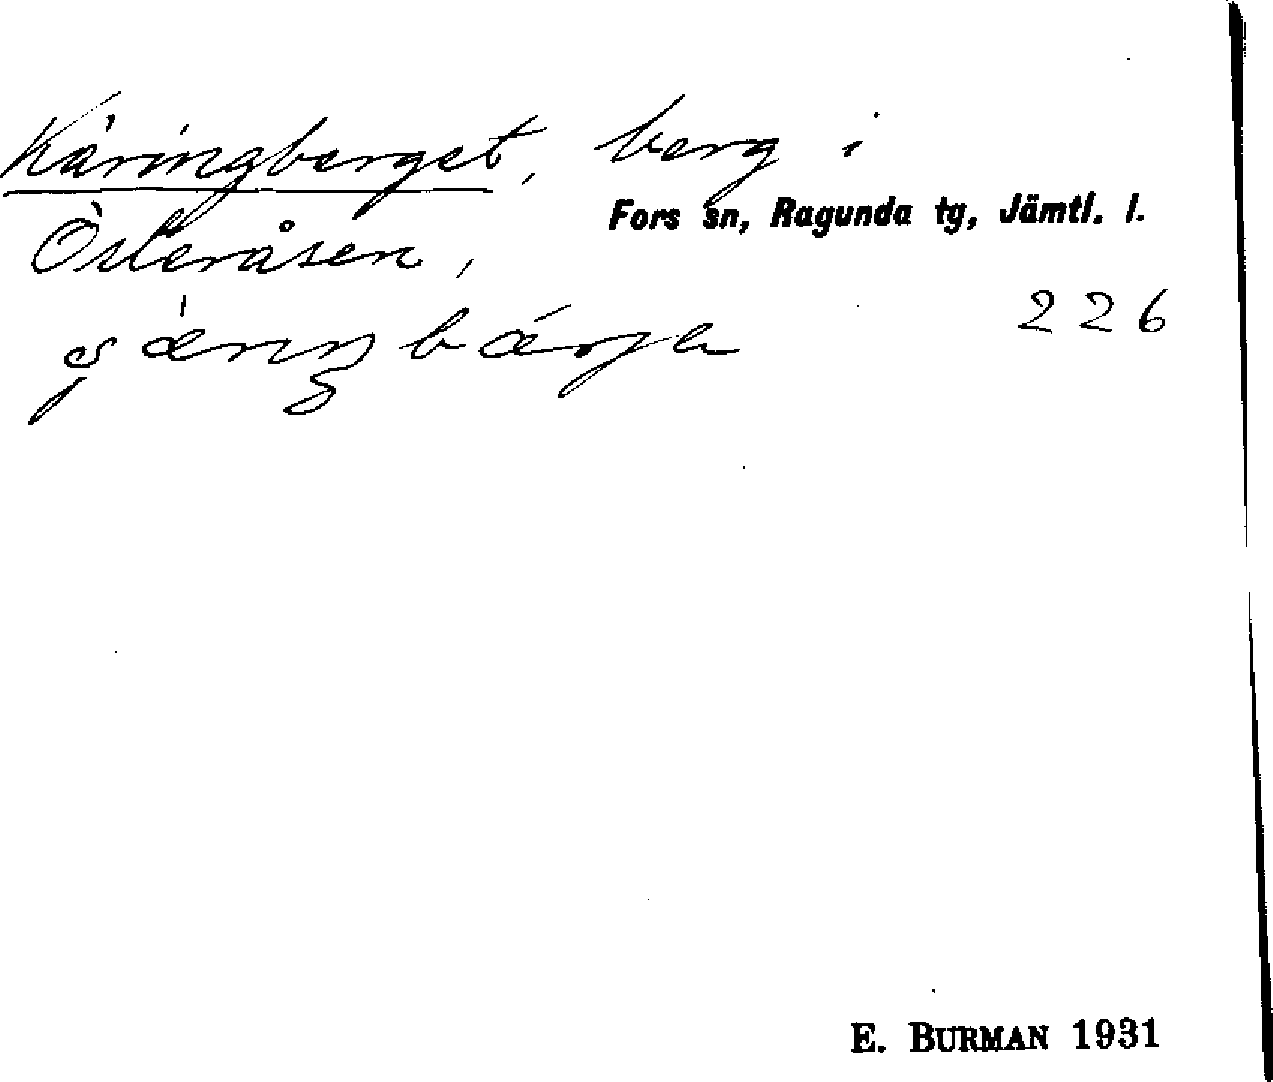 Käringberget, berg i
Fors sn, Ragunda tg, Jämtl. l.
Österåsen,
226
E. BURMAN 1931